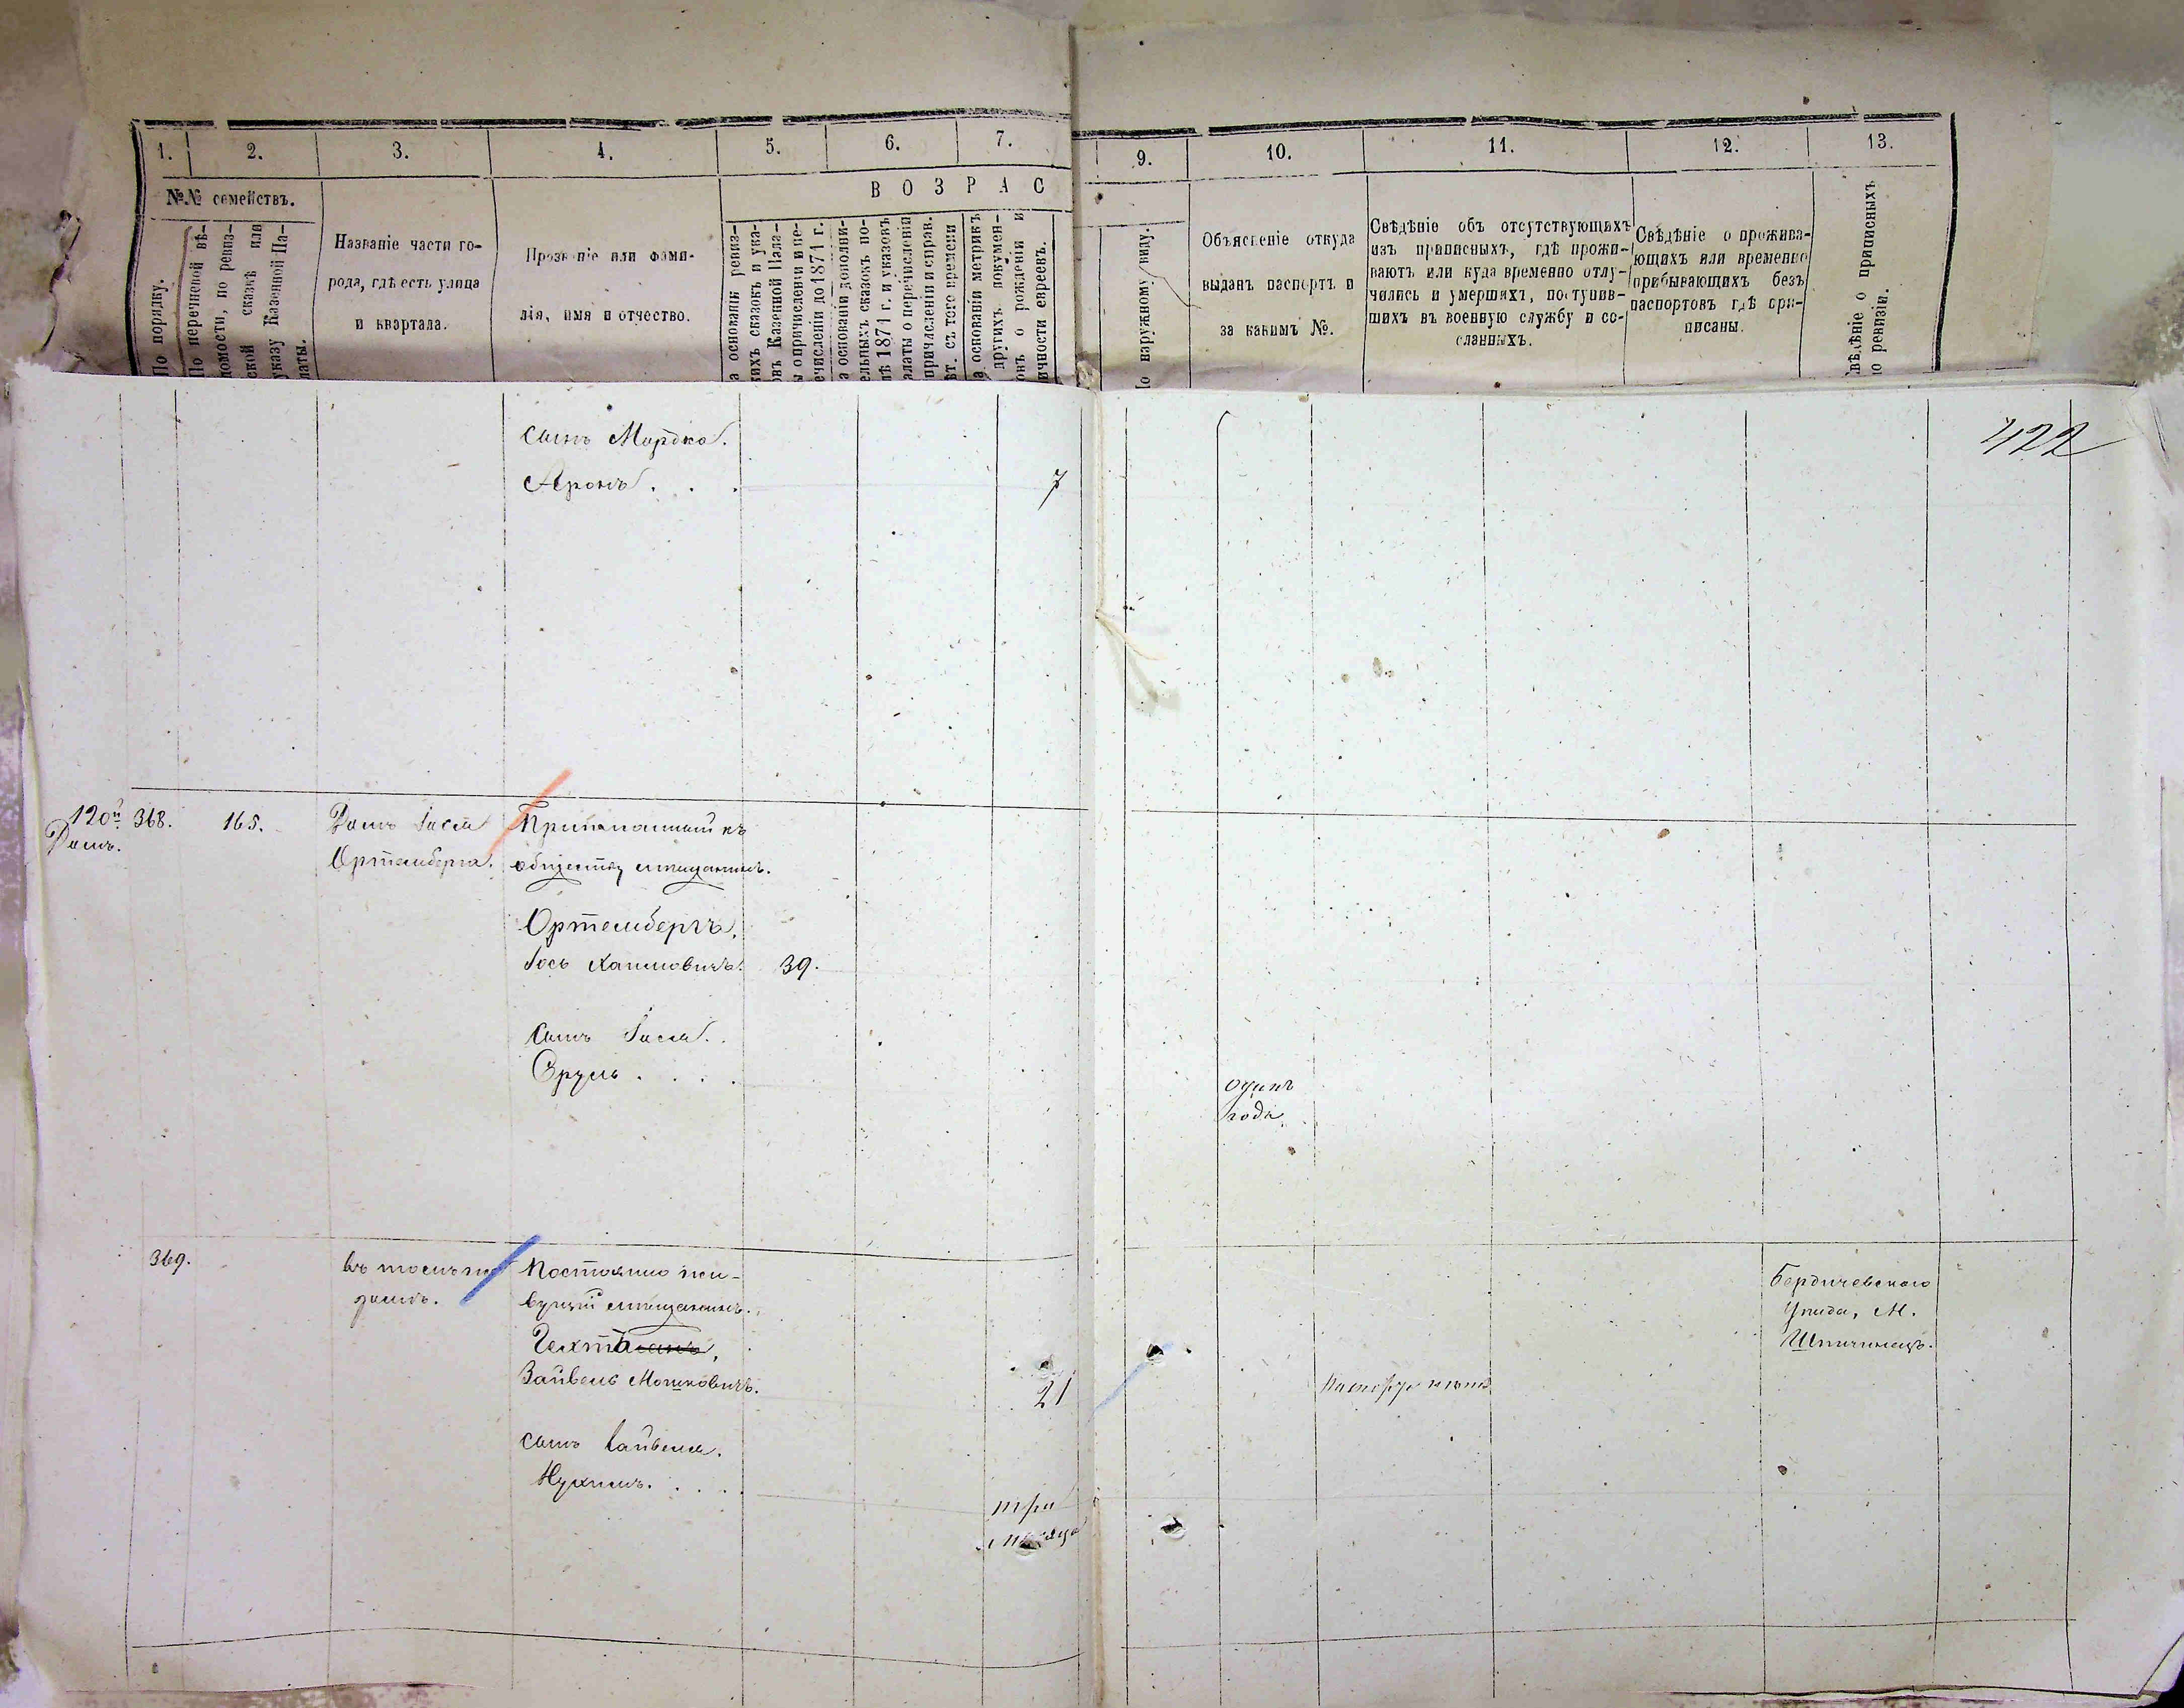 1.
2.
3.
4.
5.
6.
7.
9.
10.
11.
12.
13.
№№ семействъ.
В О З Р А С
По порядку.
По перечневой вѣ-
домости, по ревиз-
ской сказкѣ или
указу Казенной Па-
латы.
Названіе части го-
рода, гдѣ есть улица
и квартала.
Прозваніе или фами-
лія, имя и отчество.
а основаніи ревиз-
кихъ сказокъ и ука-
овъ Казенной Пала-
ы о причисленіи и пе-
ечисленіи до 1871 г.
а основаніи дополни-
ельныхъ сказокъ по-
лѣ 1871 г. и указовъ
алаты о перечисленіи
причисленіи и справ.
ѣт. съ того времени
а основаніи метрикъ
другихъ докумен-
овъ о рожденіи и
ичности евреевъ.
о наружному виду.
Объясненіе откуда
выданъ паспортъ и
за какимъ №.
Свѣдѣніе объ отсутствующихъ
изъ приписныхъ, гдѣ прожи-
ваютъ или куда временно отлу-
чились и умершихъ, поступив-
шихъ въ военную службу и со-
сланныхъ.
Свѣдѣніе о прожива-
ющихъ или временно
прибывающихъ безъ
паспортовъ гдѣ при-
писаны.
вѣдѣніе о приписныхъ
о ревизіи.
422
сынъ Мордка.
Аронъ . . .
7
120й
Домъ.
368.
165.
Домъ Іося
Ортемберга.
Приписанный къ
обществу мѣщанинъ.
Ортембергъ,
Іось Хаимовичъ.
39.
Сынъ Іося.
Сруль . . . .
одинъ
годъ.
369.
въ томъ же
домѣ.
Постоянно жи-
вущій мѣщанинъ.
Зайвель Мошковичъ.
21
Паспорта нѣтъ
Бердичевскаго
Уѣзда, М.
Шпичинецъ.
сынъ Зайвеля.
Нухимъ. . . . .
три
мѣсяца